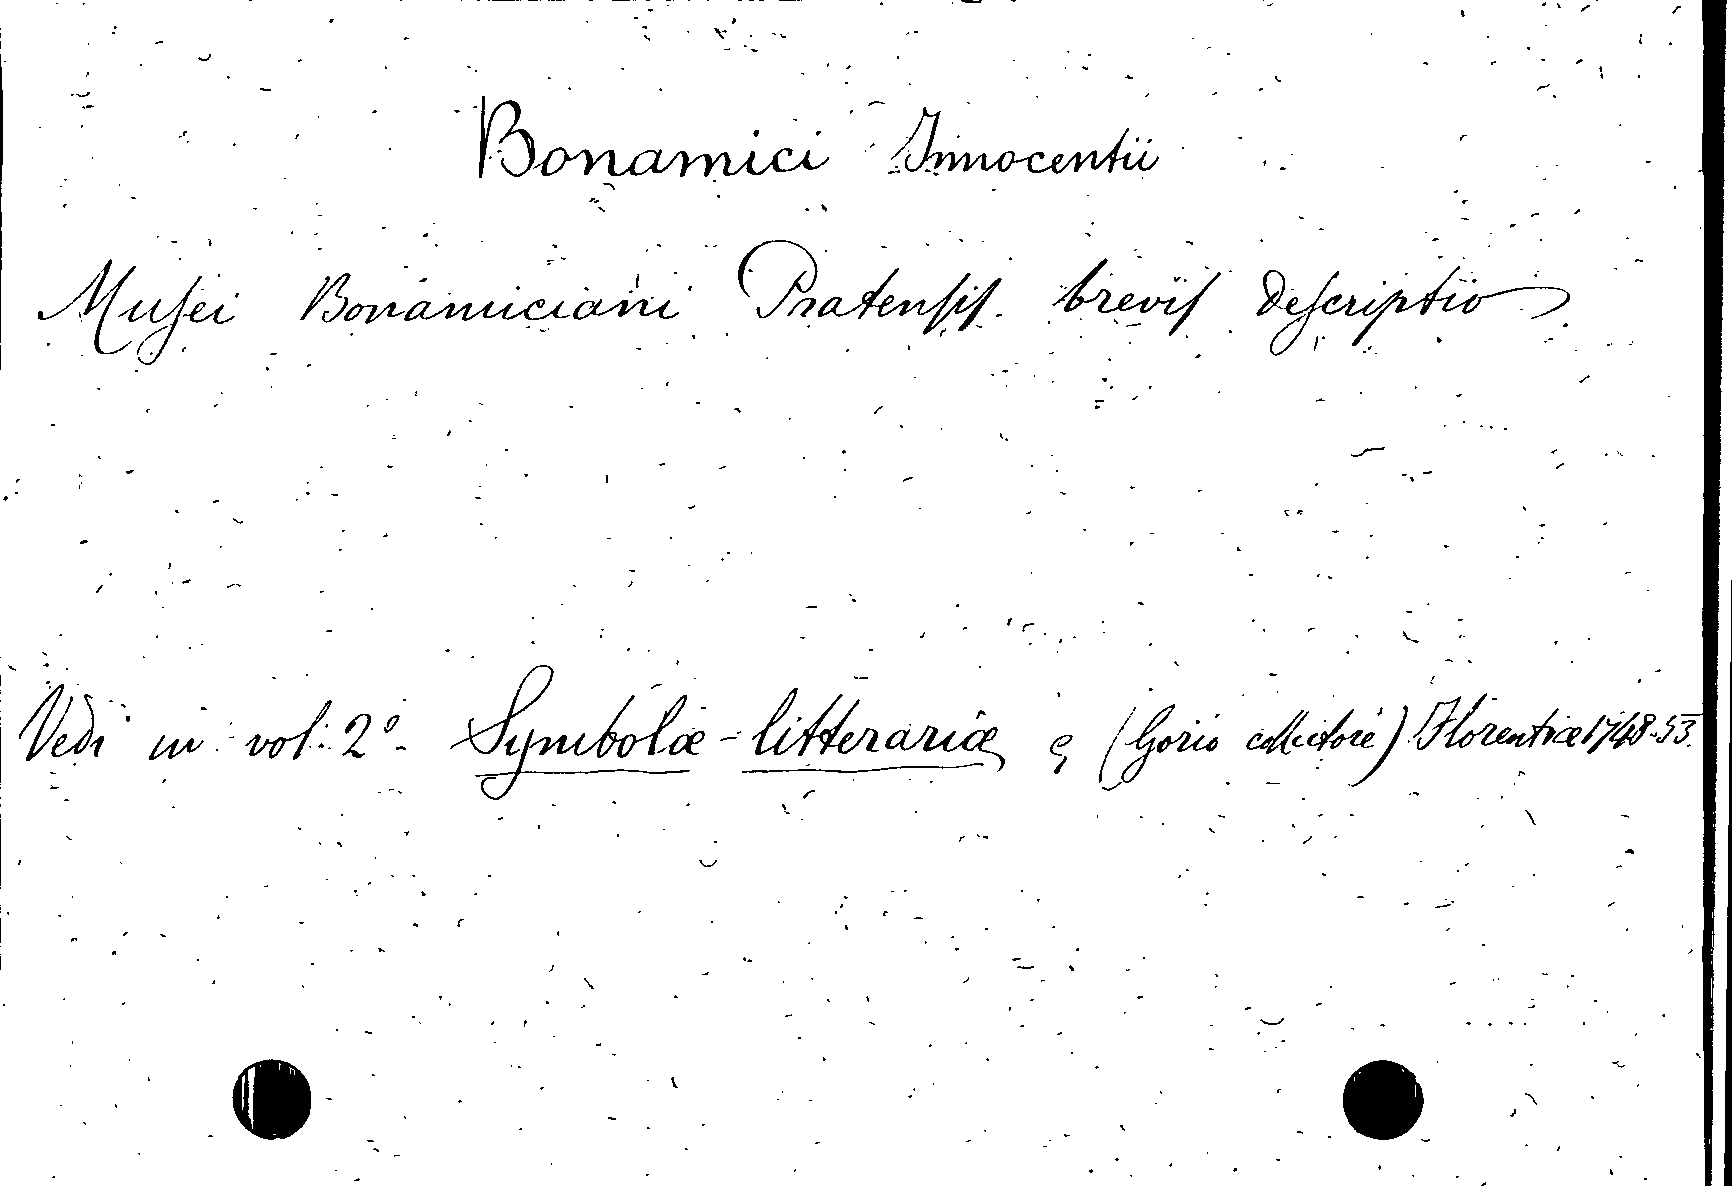 Bonamici Innocentii
Musei Bonamiciani Pratensis. brevis descriptio
Vedi in vol. 2º. Symbolæ-litterariæ (Gorio collectore) Florentiæ 1748-53.